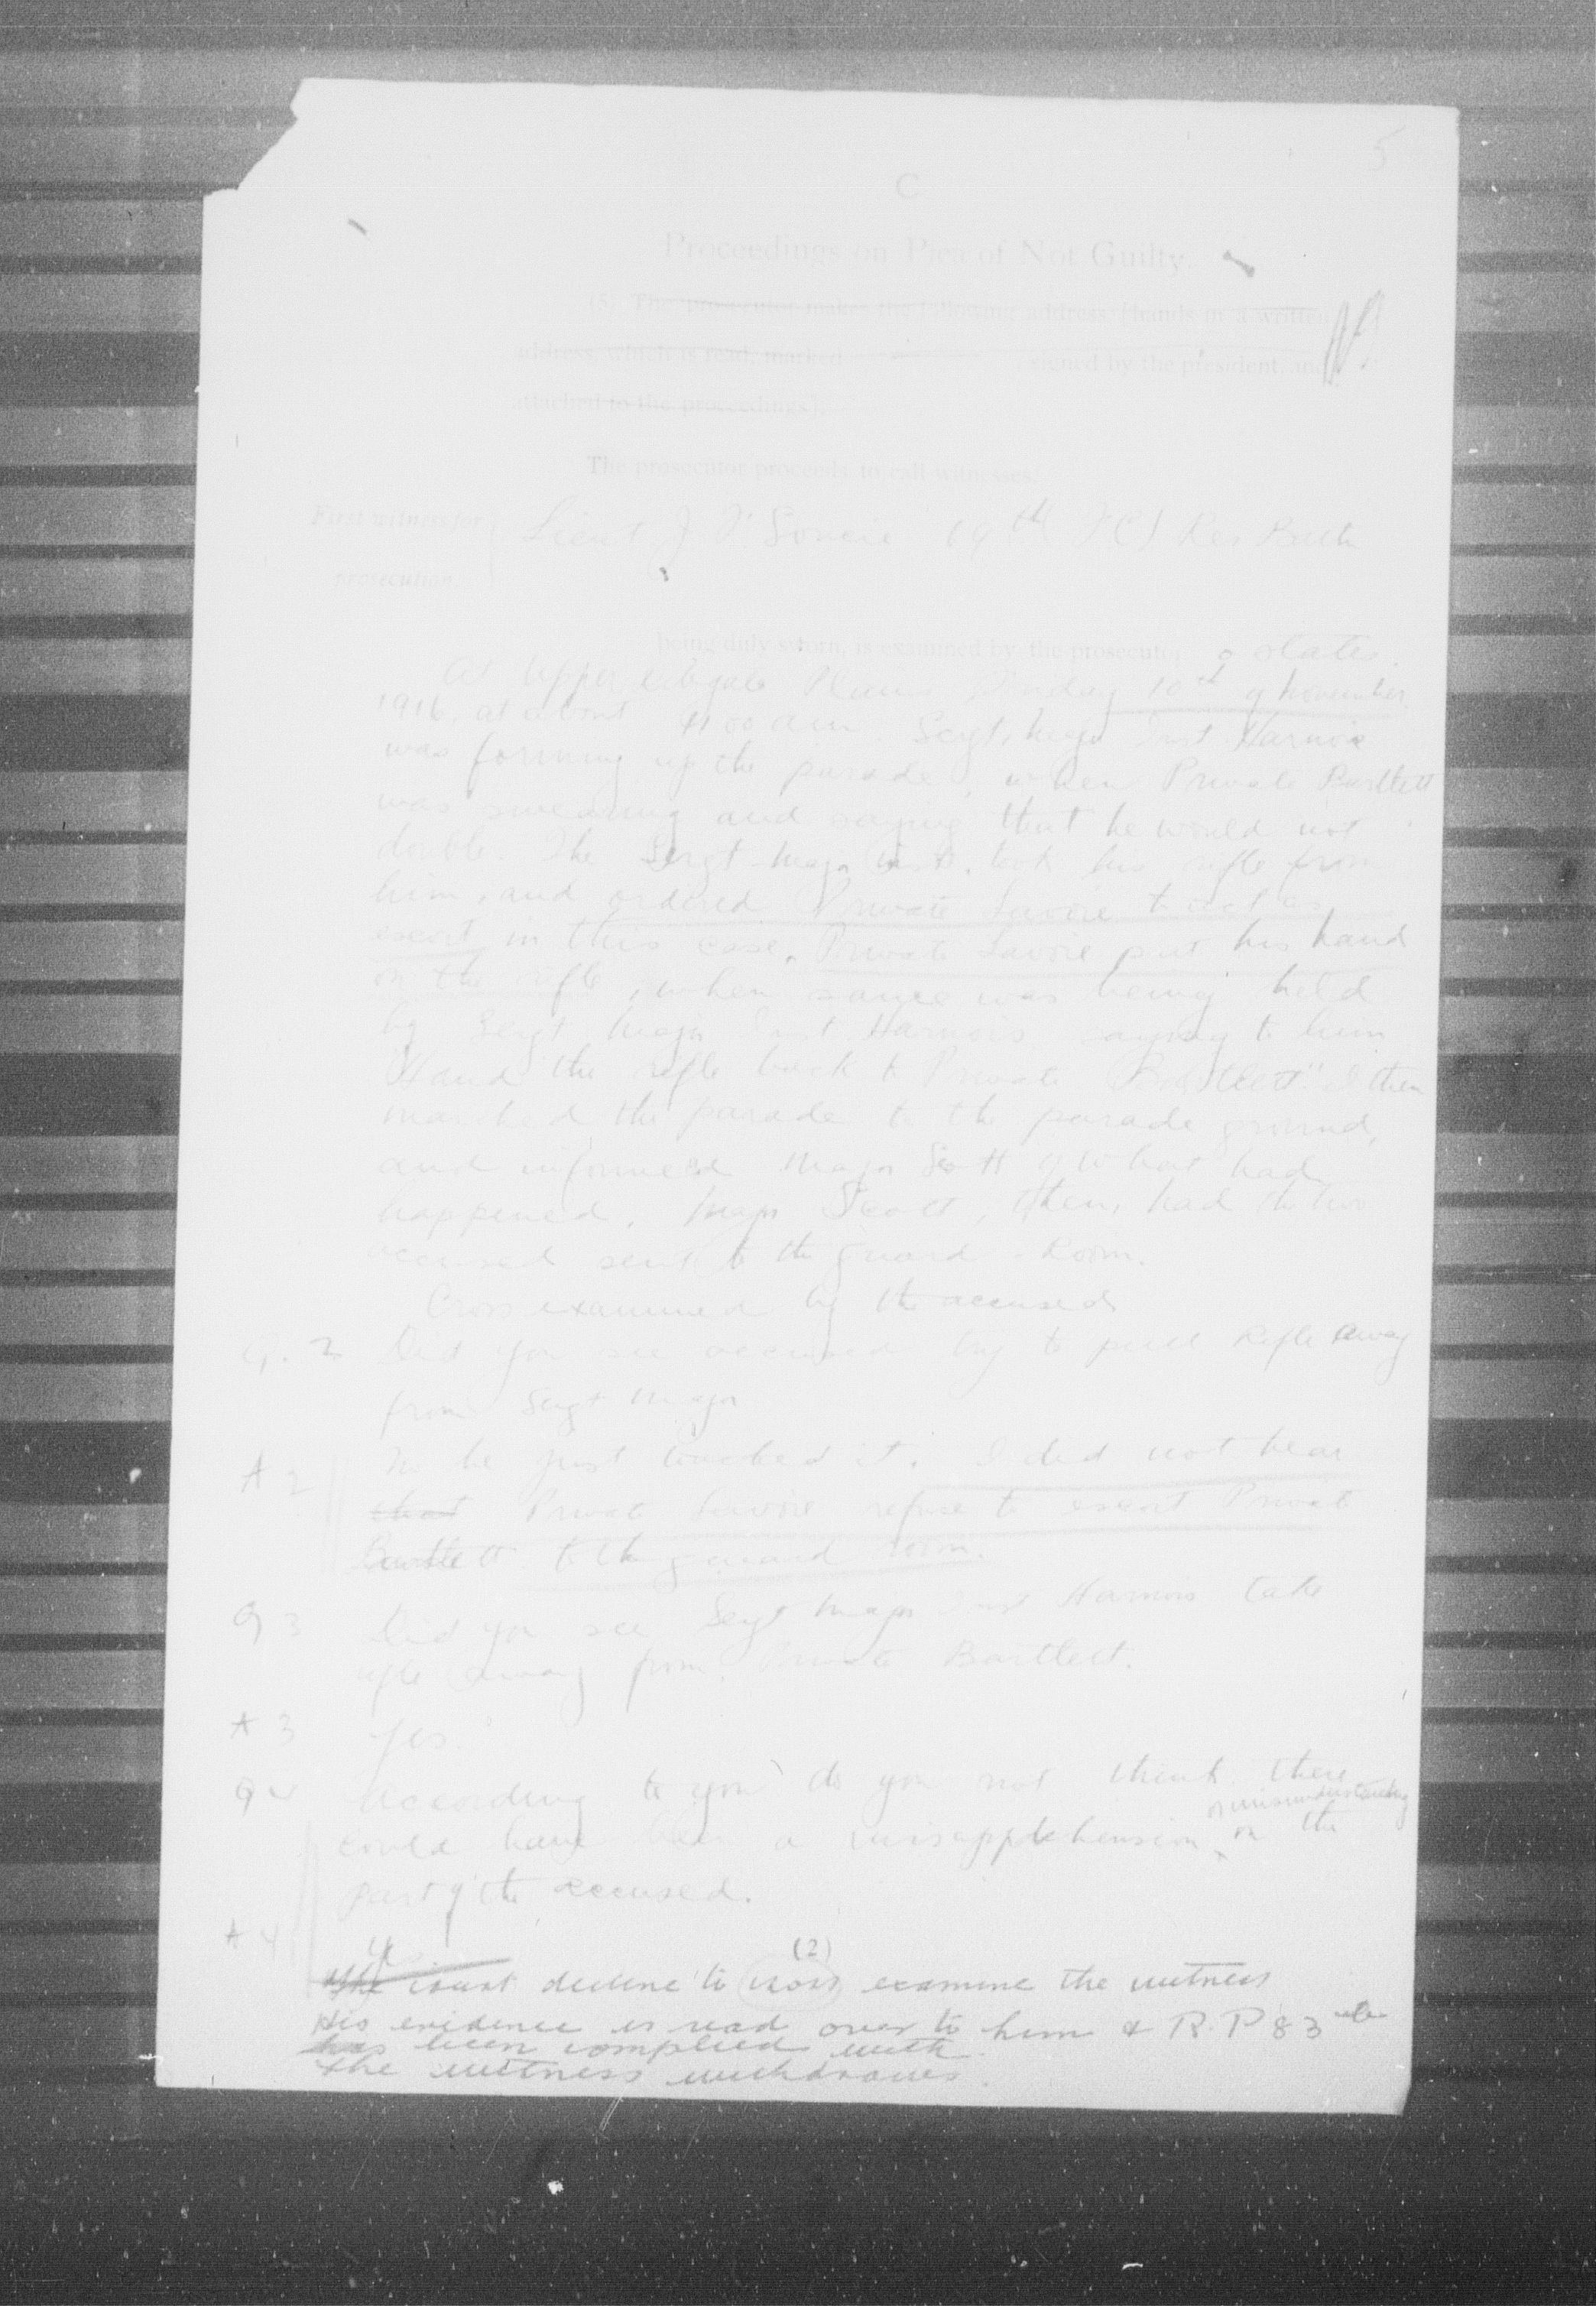 5
C
Proceedings on Plea of Not Guilty.
(5) The prosecutor makes the following address [hands in a written
address, which is read, marked signed by the president, and
attached to the proceedings].
The prosecutor proceeds to call witnesses.
First witness for
prosecution.
Lieut J. 69th Res Battn
being duly sworn, is examined by the prosecutor & states.
At Upper Plains Friday 10th of November
1916, at about 11 00 am Sergt. Major Inst Harnois
was forming up the parade, when Private Bartlett
was swearing and saying that he would not
double. The Sergt Major Inst. took his rifle from
him, and ordered Private Savoie to act as
escort in this case. Private Savoie put his hand
on the rifle, when same was being held
by Sergt Major Inst Harnois saying to him
"Hand the rifle back to Private Bartlett" I then
marched the parade to the parade ground,
and informed Major Scott of what had
happened. Major Scott, then, had the two
accused sent to the guard-Room.
Cross examined by the accused
Q. 2 Did you see accused try to pull Rifle away
from Sergt Major
A 2 No he just touched it. I did not hear
that Private Savoie refuse to escort Private
Bartlett to the guard room.
Q 3 Did you see Sergt Major Inst Harnois take
rifle away from Private Bartlett.
A 3 Yes.
Q 4 According to you do you not think there
or misunderstanding
could have been a misapprehension on the
part of the accused.
A 4
(2)
The court decline to cross examine the witness
His evidence is read over to him & R.P 83
has been complied with.
The witness withdraws.